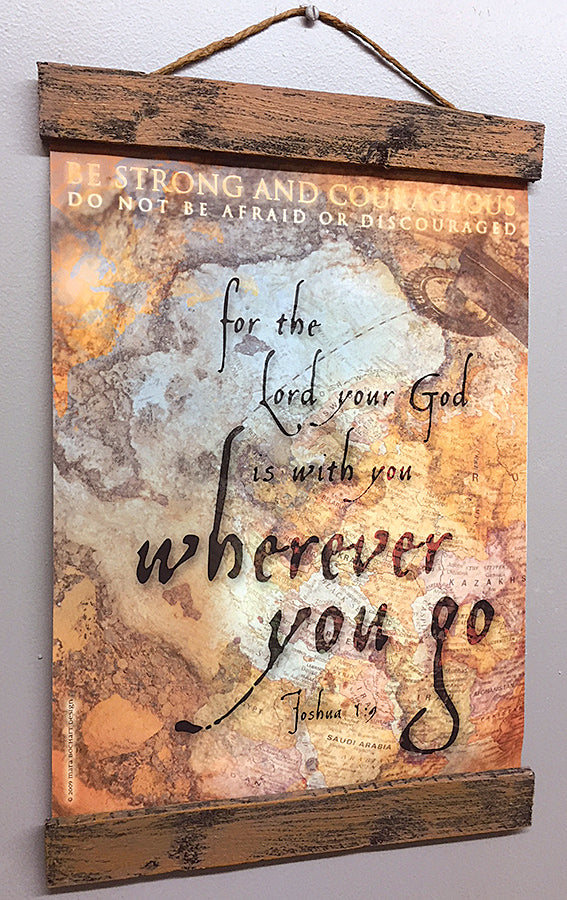 BE STRONG AND COURAGEOUS
DO NOT BE AFRAID OR DISCOURAGED
for the
Lord your God
is with you
wherever
you go
Joshua 1:9
KAZAKHS
SAUDI ARABIA
© 2009